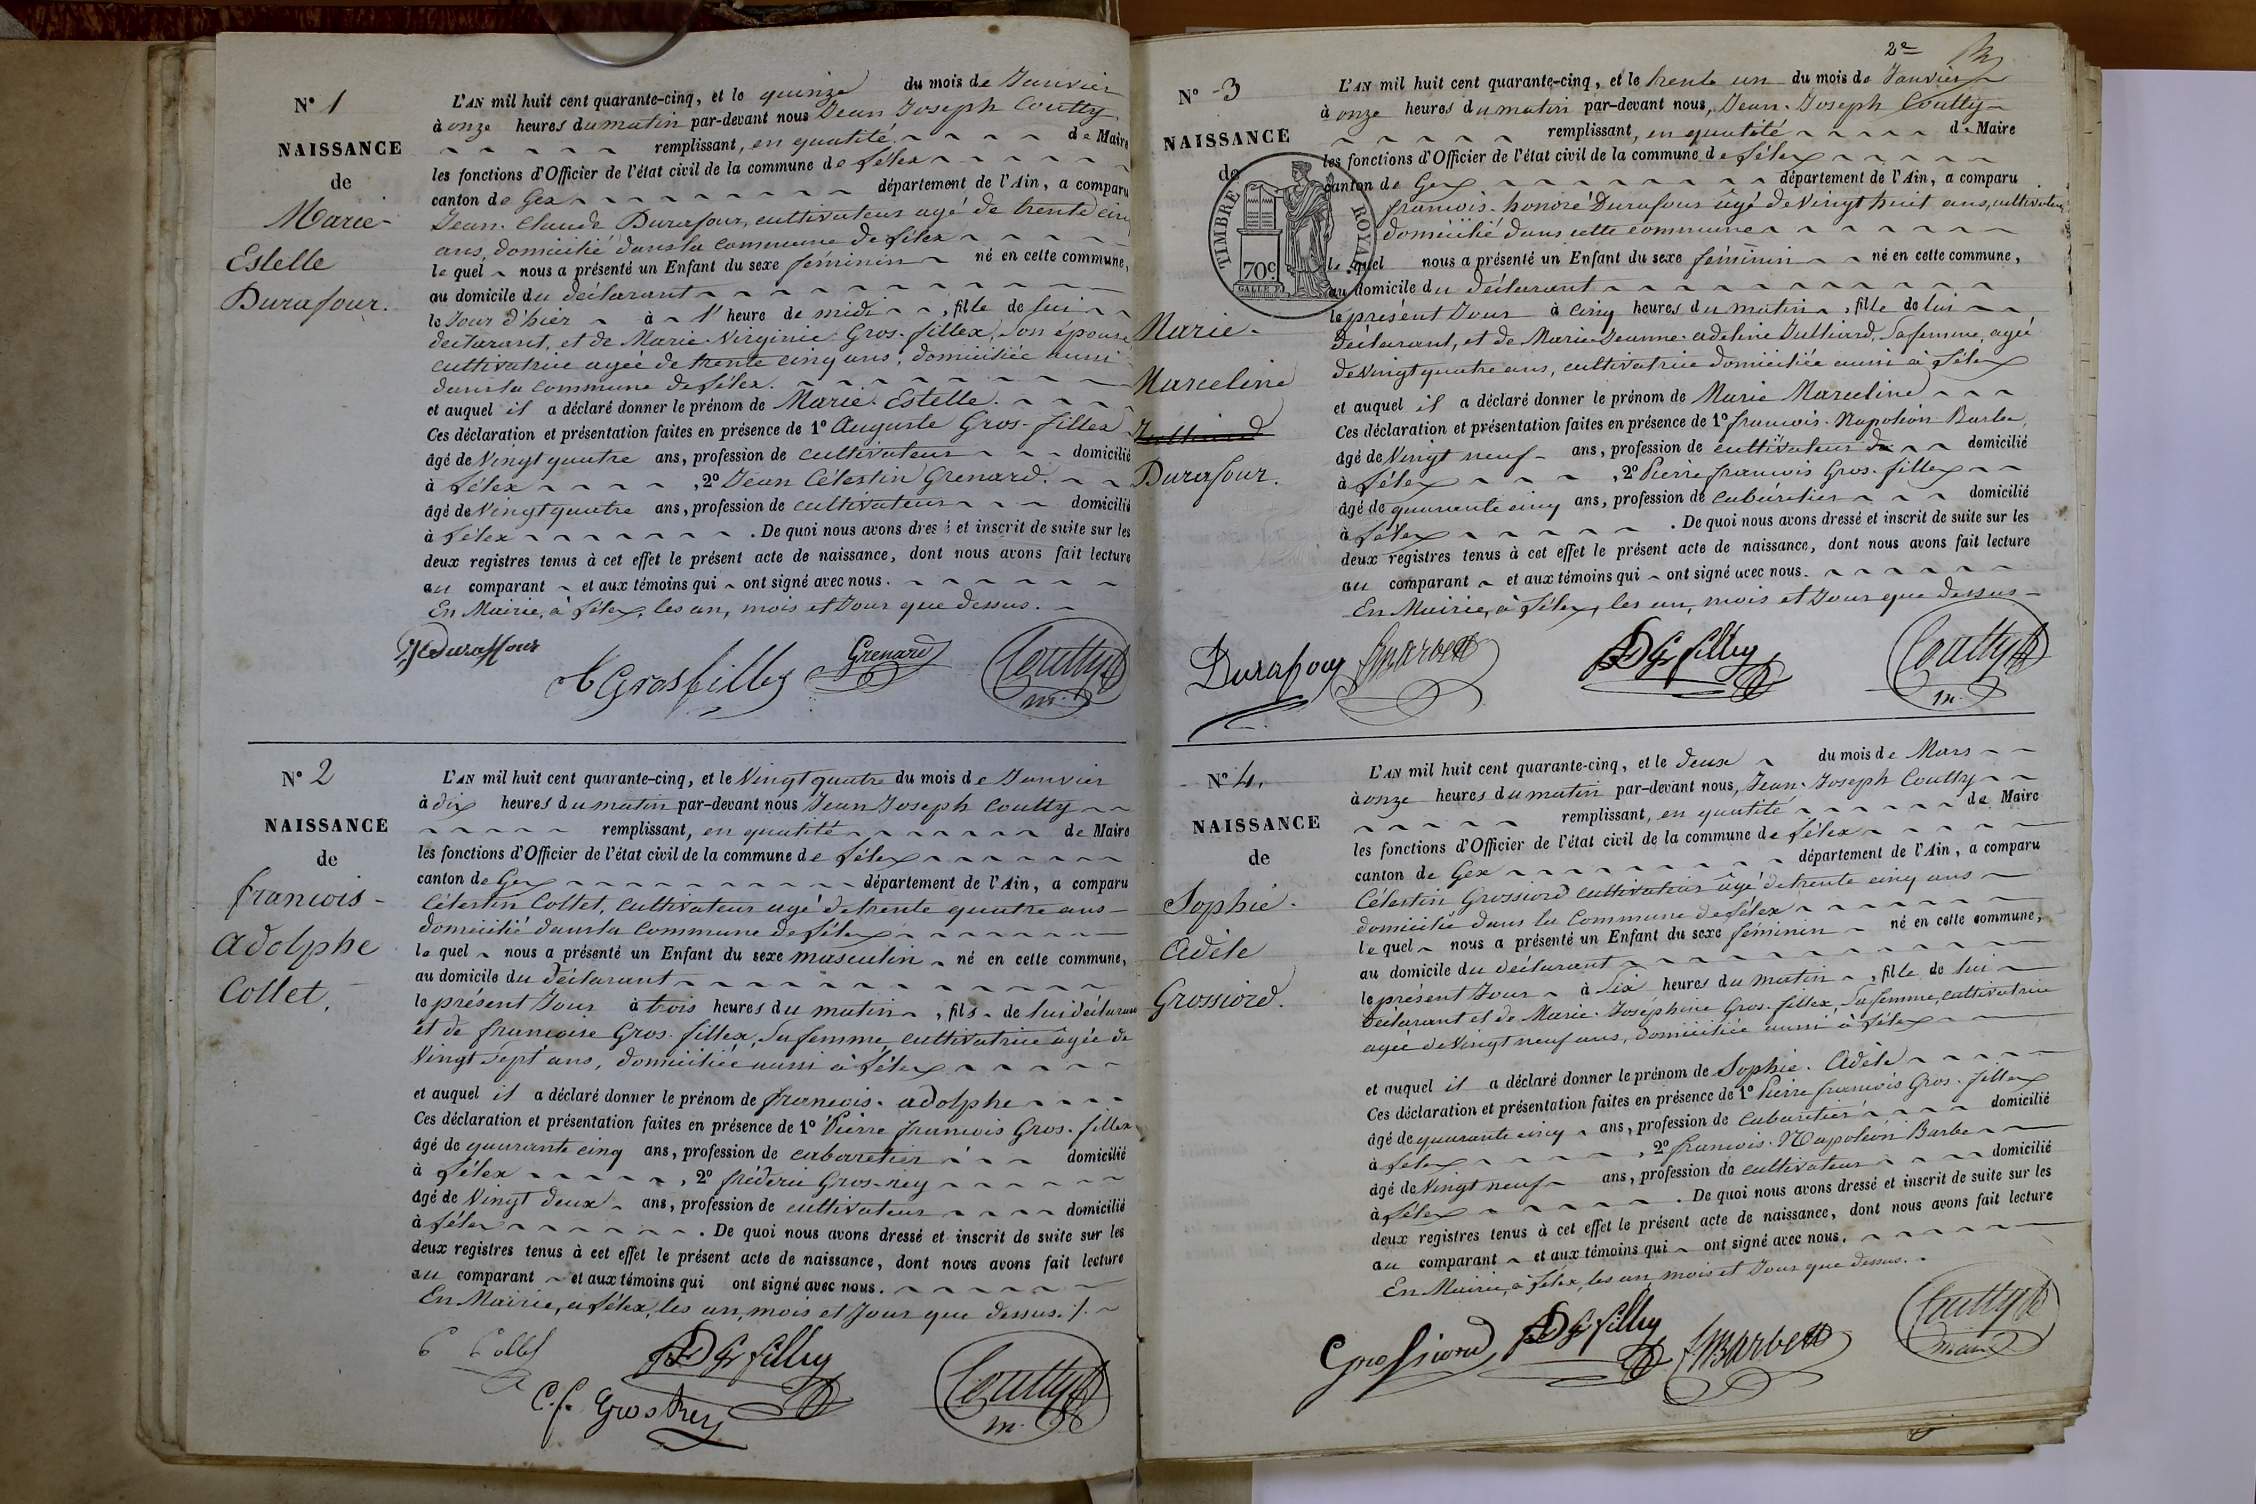 N° 1
NAISSANCE
de
Marie-
Estelle
Durafour.
L'AN mil huit cent quarante-cinq, et le quinze du mois de Janvier
à onze heures du matin par-devant nous Jean Joseph Coutty
remplissant, en quatité de Maire
les fonctions d'Officier de l'état civil de la commune de Lélex
canton de Gex département de l'Ain, a comparu
Jean-Claude Durafour, cultivateur agé de trente cinq
ans, domicilié dans la commune de Lélex
le quel nous a présenté un Enfant du sexe féminin né en cette commune,
au domicile du déclarant
le Jour d'hier à l' heure de midi, fille de lui
déclarant, et de Marie-Virginie Gros-fillex, son épouse
cultivatrice agée de trente cinq ans, domiciliée aussi
dans la commune de Lélex.
et auquel il a déclaré donner le prénom de Marie-Estelle.
Ces déclaration et présentation faites en présence de 1° Auguste Gros-fillex
âgé de Vingt quatre ans, profession de cultivateur domicilié
à Lélex, 2° Jean Célestin Grenard.
âgé de Vingt quatre ans, profession de cultivateur domicilié
à Lélex. De quoi nous avons dressé et inscrit de suite sur les
deux registres tenus à cet effet le présent acte de naissance, dont nous avons fait lecture
au comparant et aux témoins qui ont signé avec nous.
En Mairie, à Lélex, les an, mois et Jour que dessus.
Duraffour
A Grosfillex Grenard Coutty
m.
N° 2
NAISSANCE
de
francois-
adolphe
Collet,
L'AN mil huit cent quarante-cinq, et le Vingt quatre du mois de Janvier
à dix heures du matin par-devant nous Jean Joseph Coutty
remplissant, en quatité de Maire
les fonctions d'Officier de l'état civil de la commune de Lélex
canton de Gex département de l'Ain, a comparu
Célestin Collet, cultivateur agé de trente quatre ans
domicilié dans la commune de Lélex
le quel nous a présenté un Enfant du sexe masculin né en cette commune,
au domicile du déclarant
le présent Jour à trois heures du matin, fils de lui déclarant
et de francoise Gros-fillex, Sa femme cultivatrice âgée de
Vingt Sept ans, domiciliée aussi à Lélex
et auquel il a déclaré donner le prénom de francois-adolphe
Ces déclaration et présentation faites en présence de 1° Pierre francois Gros-fillex
âgé de quarante cinq ans, profession de cabaretier domicilié
à Lélex, 2° fréderic Gros-rey
âgé de Vingt deux ans, profession de cultivateur domicilié
à Lélex. De quoi nous avons dressé et inscrit de suite sur les
deux registres tenus à cet effet le présent acte de naissance, dont nous avons fait lecture
au comparant et aux témoins qui ont signé avec nous.
En Mairie, à Lélex, les an, mois et Jour que dessus.
C Collet
C.f. Grosrey Coutty
m.
2e
N° 3
NAISSANCE
de
TIMBRE ROYAL
70c
Marie-
Marceline
Julliard
Durafour.
L'AN mil huit cent quarante-cinq, et le trente un du mois de Janvier
à onze heures du matin par-devant nous, Jean-Joseph Coutty
remplissant, en quatité de Maire
les fonctions d'Officier de l'état civil de la commune de Lélex
canton de Gex département de l'Ain, a comparu
francois-honoré Durafour âgé de Vingt huit ans, cultivateur
domicilié dans cette commune
le quel nous a présenté un Enfant du sexe féminin né en cette commune,
au domicile du déclarant
le présent Jour à cinq heures du matin, fille de lui
déclarant, et de Marie-Jeanne-adeline Julliard, Sa femme, agée
de Vingt quatre ans, cultivatrice domiciliée aussi à Lélex
et auquel il a déclaré donner le prénom de Marie Marceline
Ces déclaration et présentation faites en présence de 1° francois-Napoléon Barbe,
âgé de Vingt neuf ans, profession de cultivateur domicilié
à Lélex, 2° Pierre francois Gros-fillex
âgé de quarante cinq ans, profession de cabaretier domicilié
à Lélex. De quoi nous avons dressé et inscrit de suite sur les
deux registres tenus à cet effet le présent acte de naissance, dont nous avons fait lecture
au comparant et aux témoins qui ont signé avec nous.
En Mairie, à Lélex, les an, mois et Jour que dessus
Durafour Coutty
m.
N° 4.
NAISSANCE
de
Sophie-
Adèle
Grossiord.
L'AN mil huit cent quarante-cinq, et le deux du mois de Mars
à onze heures du matin par-devant nous, Jean-Joseph Coutty
remplissant, en quatité de Maire
les fonctions d'Officier de l'état civil de la commune de Lélex
canton de Gex département de l'Ain, a comparu
Célestin Grossiord cultivateur âgé de trente cinq ans
domicilié dans la Commune de Lélex
le quel nous a présenté un Enfant du sexe féminin né en cette commune,
au domicile du déclarant
le présent Jour à Six heures du matin, fille de lui
Déclarant et de Marie-Joséphine Gros-fillex, Sa femme, cultivatrice
agée de Vingt neuf ans, domiciliée aussi à Lélex
et auquel il a déclaré donner le prénom de Sophie-Adèle
Ces déclaration et présentation faites en présence de 1° Pierre francois Gros-fillex
âgé de quarante cinq ans, profession de Cabaretier domicilié
à Lélex, 2° francois-Napoléon Barbe
âgé de Vingt neuf ans, profession de cultivateur domicilié
à Lélex. De quoi nous avons dressé et inscrit de suite sur les
deux registres tenus à cet effet le présent acte de naissance, dont nous avons fait lecture
au comparant et aux témoins qui ont signé avec nous.
En Mairie, à Lélex, les an, mois et Jour que dessus.
Grossiord Coutty